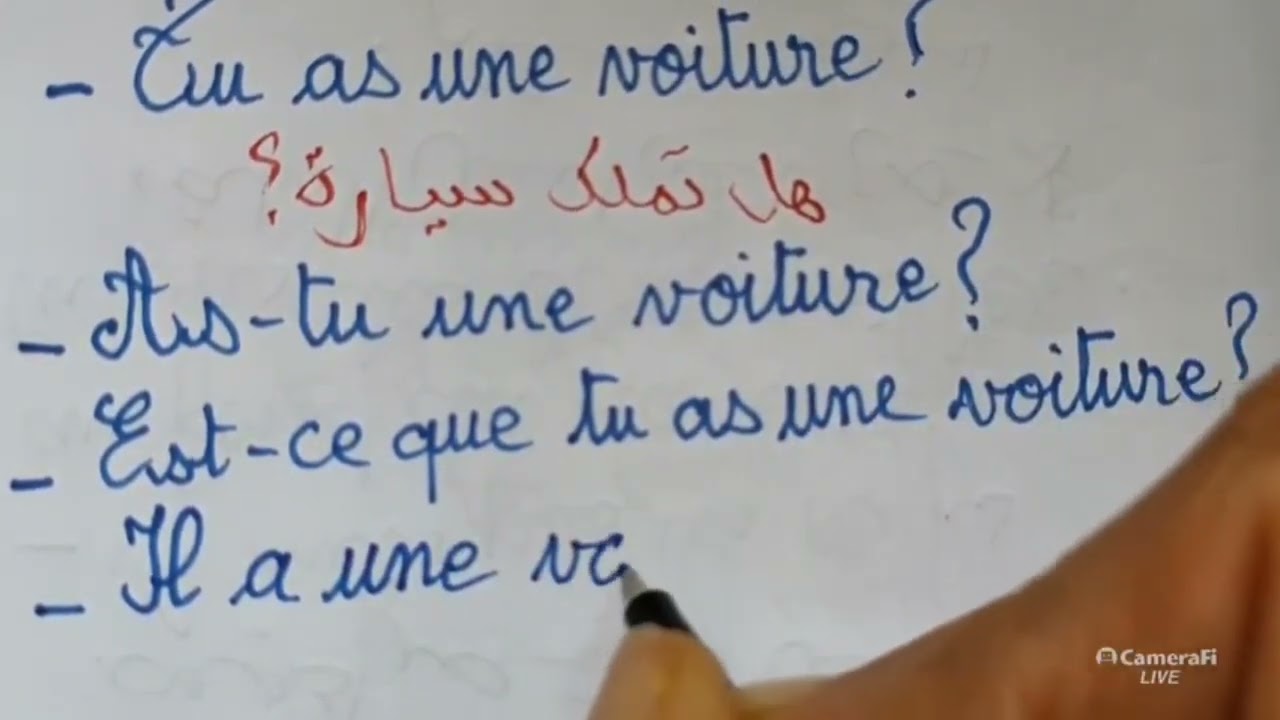 - Tu as une voiture ?
هل تملك سيارة؟
- As-tu une voiture ?
- Est-ce que tu as une voiture ?
- Il a une vo
CameraFi
LIVE